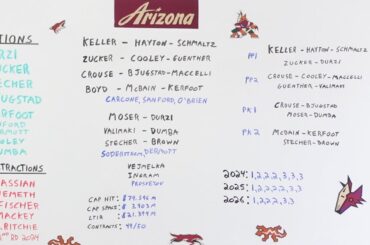 Arizona
TIONS
RZI
UCKER
ECHER
UGSTAD
RFOOT
NFORD
RMOTT
OOLEY
UMBA
TRACTIONS
ASSIAN
NEMETH
FISCHER
MACKEY
.RITCHIE
2ND RD 2024
KELLER - HAYTON - SCHMALTZ
ZUCKER - COOLEY - GUENTHER
CROUSE - BJUGSTAD - MACCELLI
BOYD - MCBAIN - KERFOOT
CARCONE, SANFORD, O'BRIEN
MOSER - DURZI
VALIMAKI - DUMBA
STECHER - BROWN
SODERSTROM, DERMOTT
VEJMELKA
INGRAM
PROSVETOV
CAP HIT:
CAP SPACE:
LTIR
CONTRACTS: 49/50
PP1
KELLER - HAYTON - SCHMALTZ
ZUCKER - DURZI
PP2
CROUSE - COOLEY - MACCELLI
GUENTHER - VALIMAKI
PK1
CROUSE - BJUGSTAD
MOSER - DUMBA
PK2
MCBAIN - KERFOOT
STECHER - BROWN
2024: 1,2,2,3,3,3
2025: 1,2,2,2,3
2026: 1,2,2,2,3,3